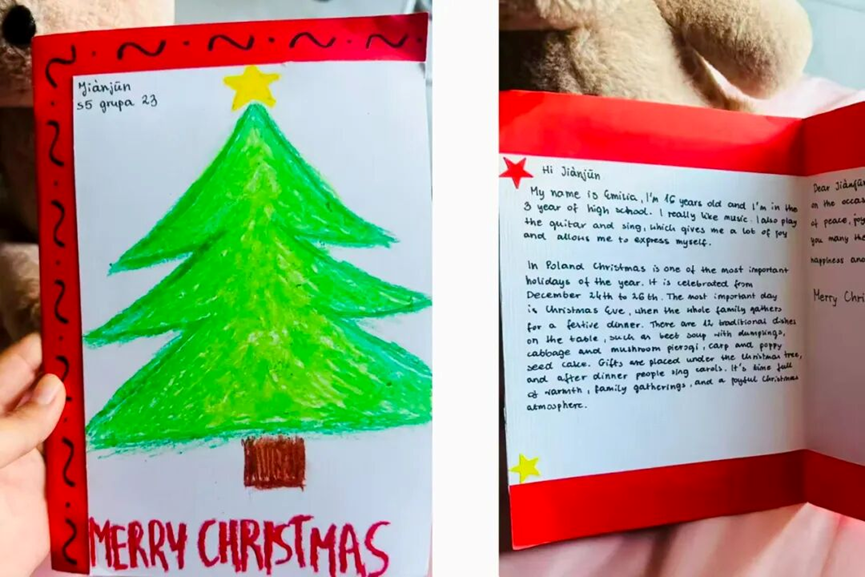 Jiànjūn
s5 grupa 23
MERRY CHRISTMAS
Hi Jiànjūn
My name is Emilia, I'm 16 years old and I'm in the
3 year of high school. I really like music. I also play
the guitar and sing, which gives me a lot of joy
and allows me to express myself.
In Poland Christmas is one of the most important
holidays of the year. It is celebrated from
December 24th to 26th. The most important day
is Christmas Eve, when the whole family gathers
for a festive dinner. There are 12 traditional dishes
on the table, such as beet soup with dumplings,
cabbage and mushroom pierogi, carp and poppy
seed cake. Gifts are placed under the Christmas tree,
and after dinner people sing carols. It's time full
of warmth, family gatherings, and a joyful Christmas
atmosphere.
Dear Jiànjūn
on the occas
of peace, joy
you many the
happiness and
Merry Chri